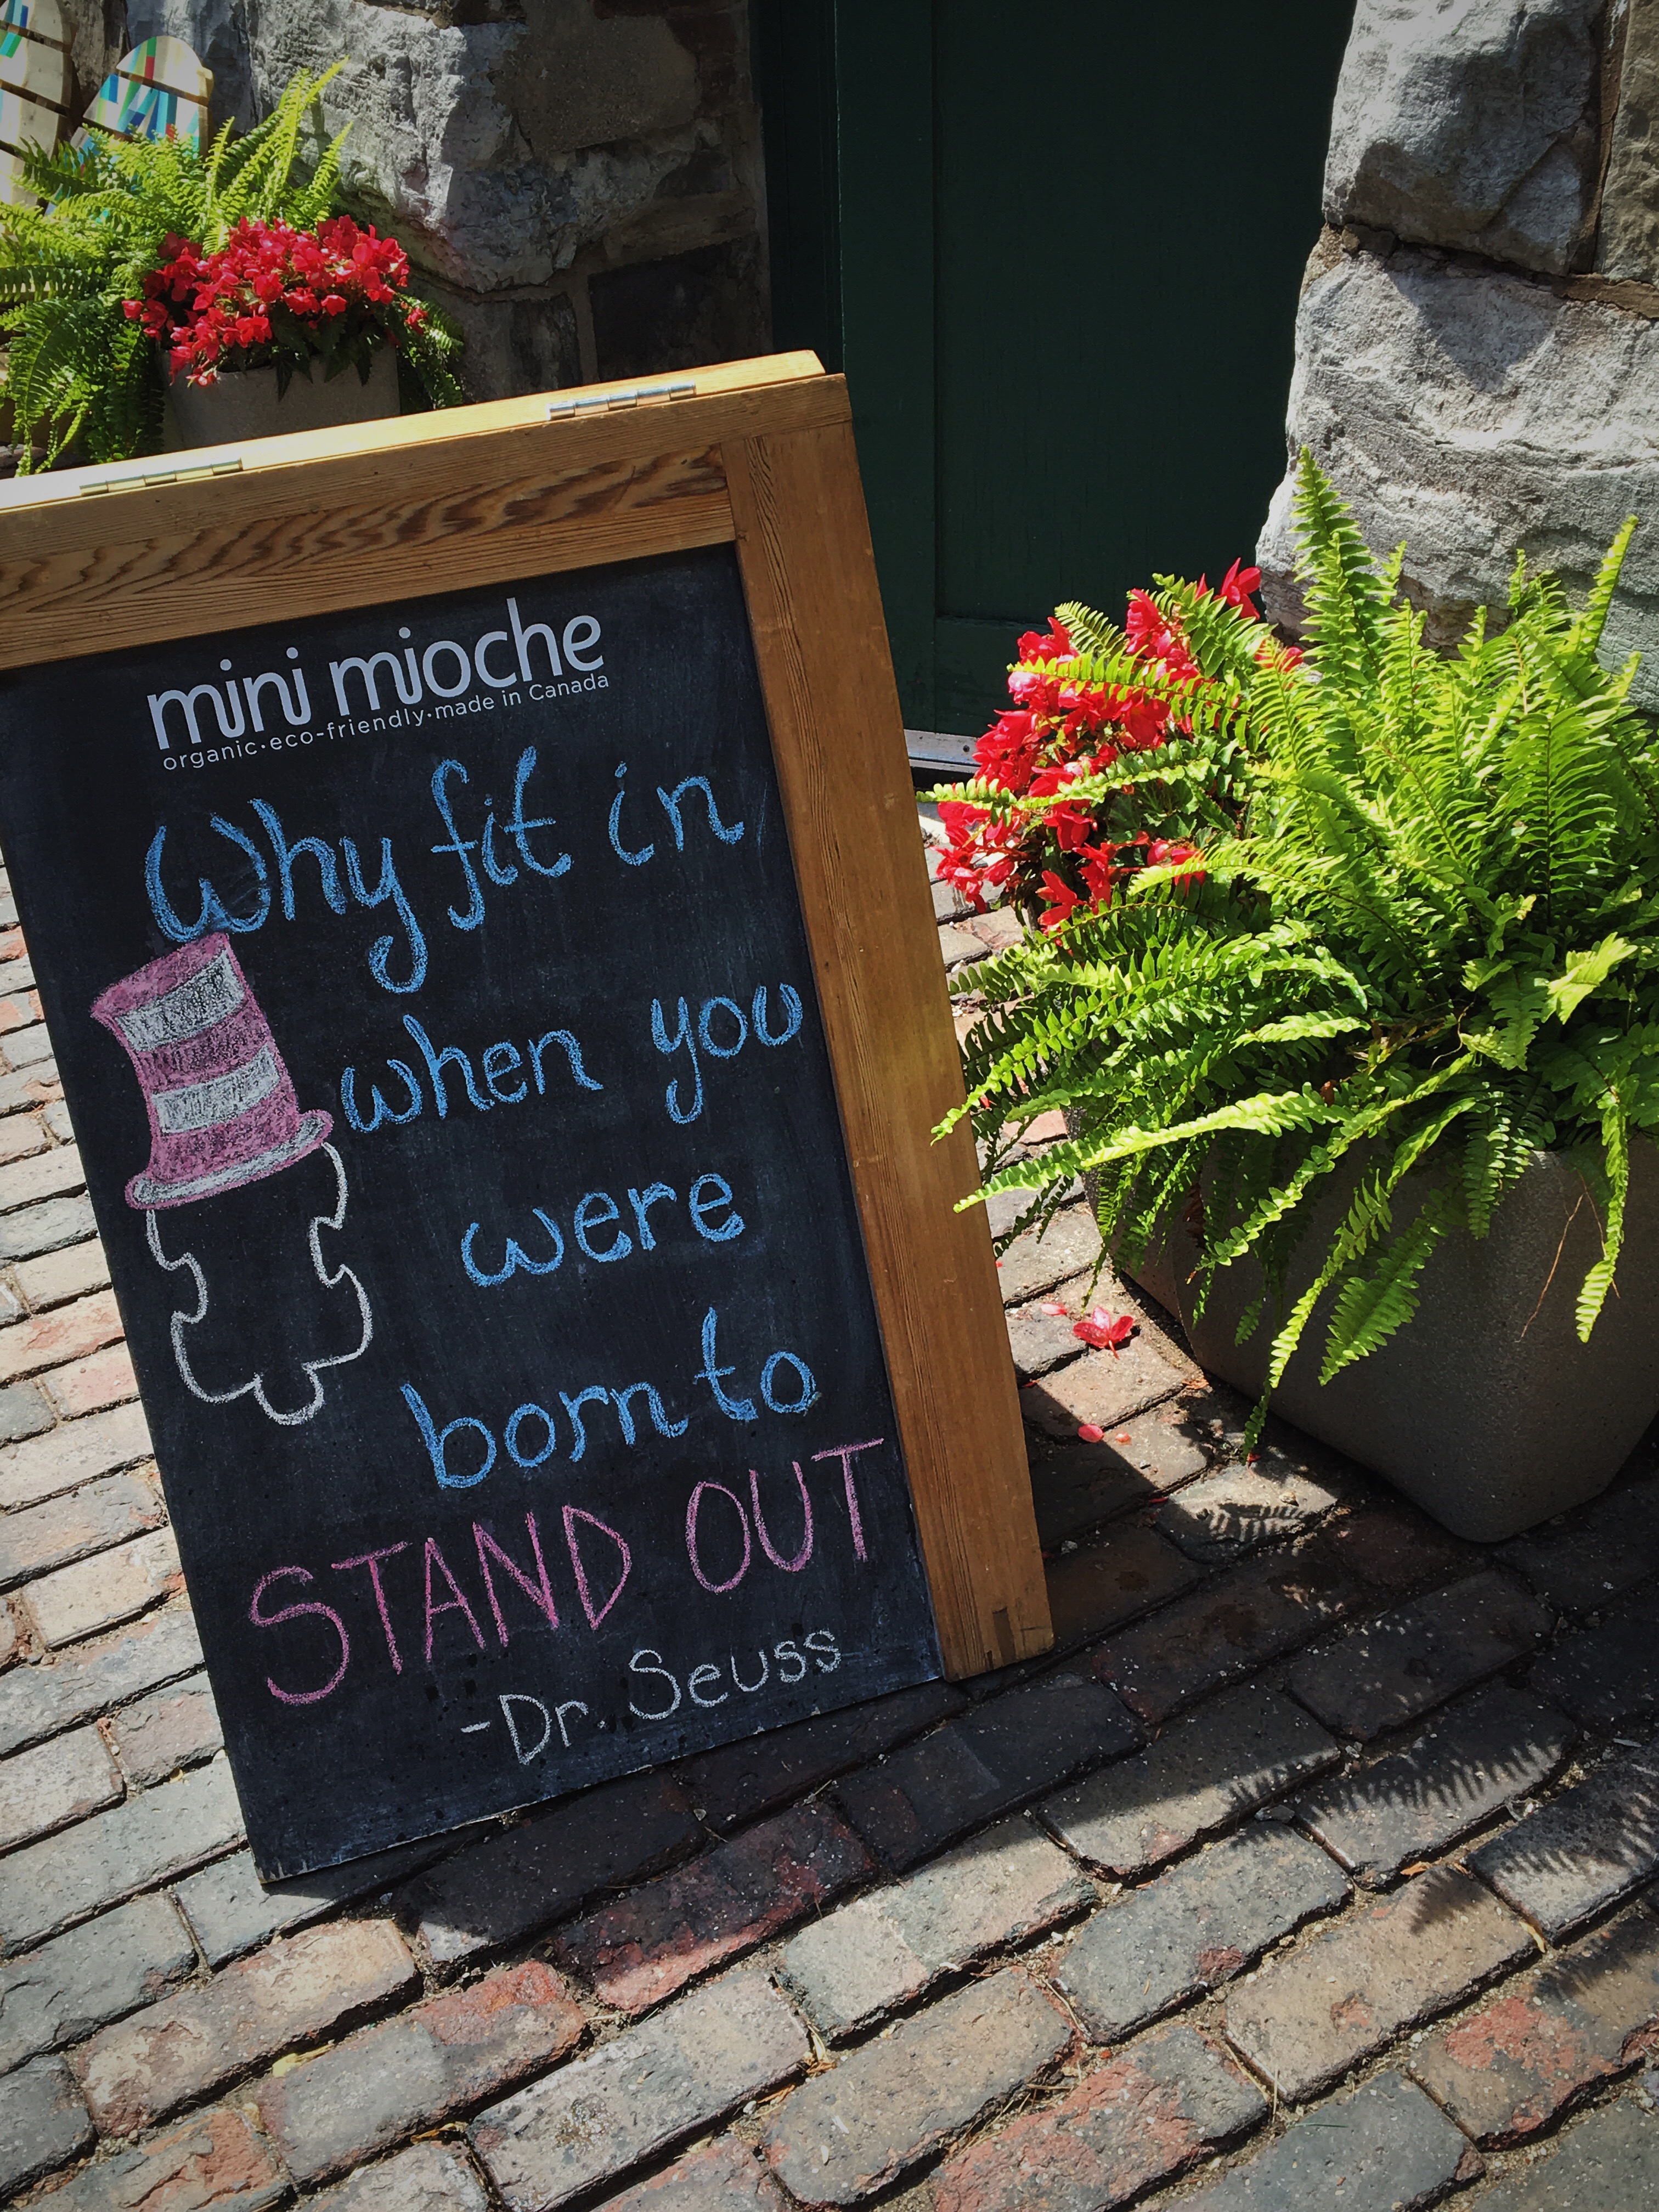 mini mioche
organic·eco-friendly·made in Canada
Why fit in
when you
were
born to
STAND OUT
-Dr. Seuss